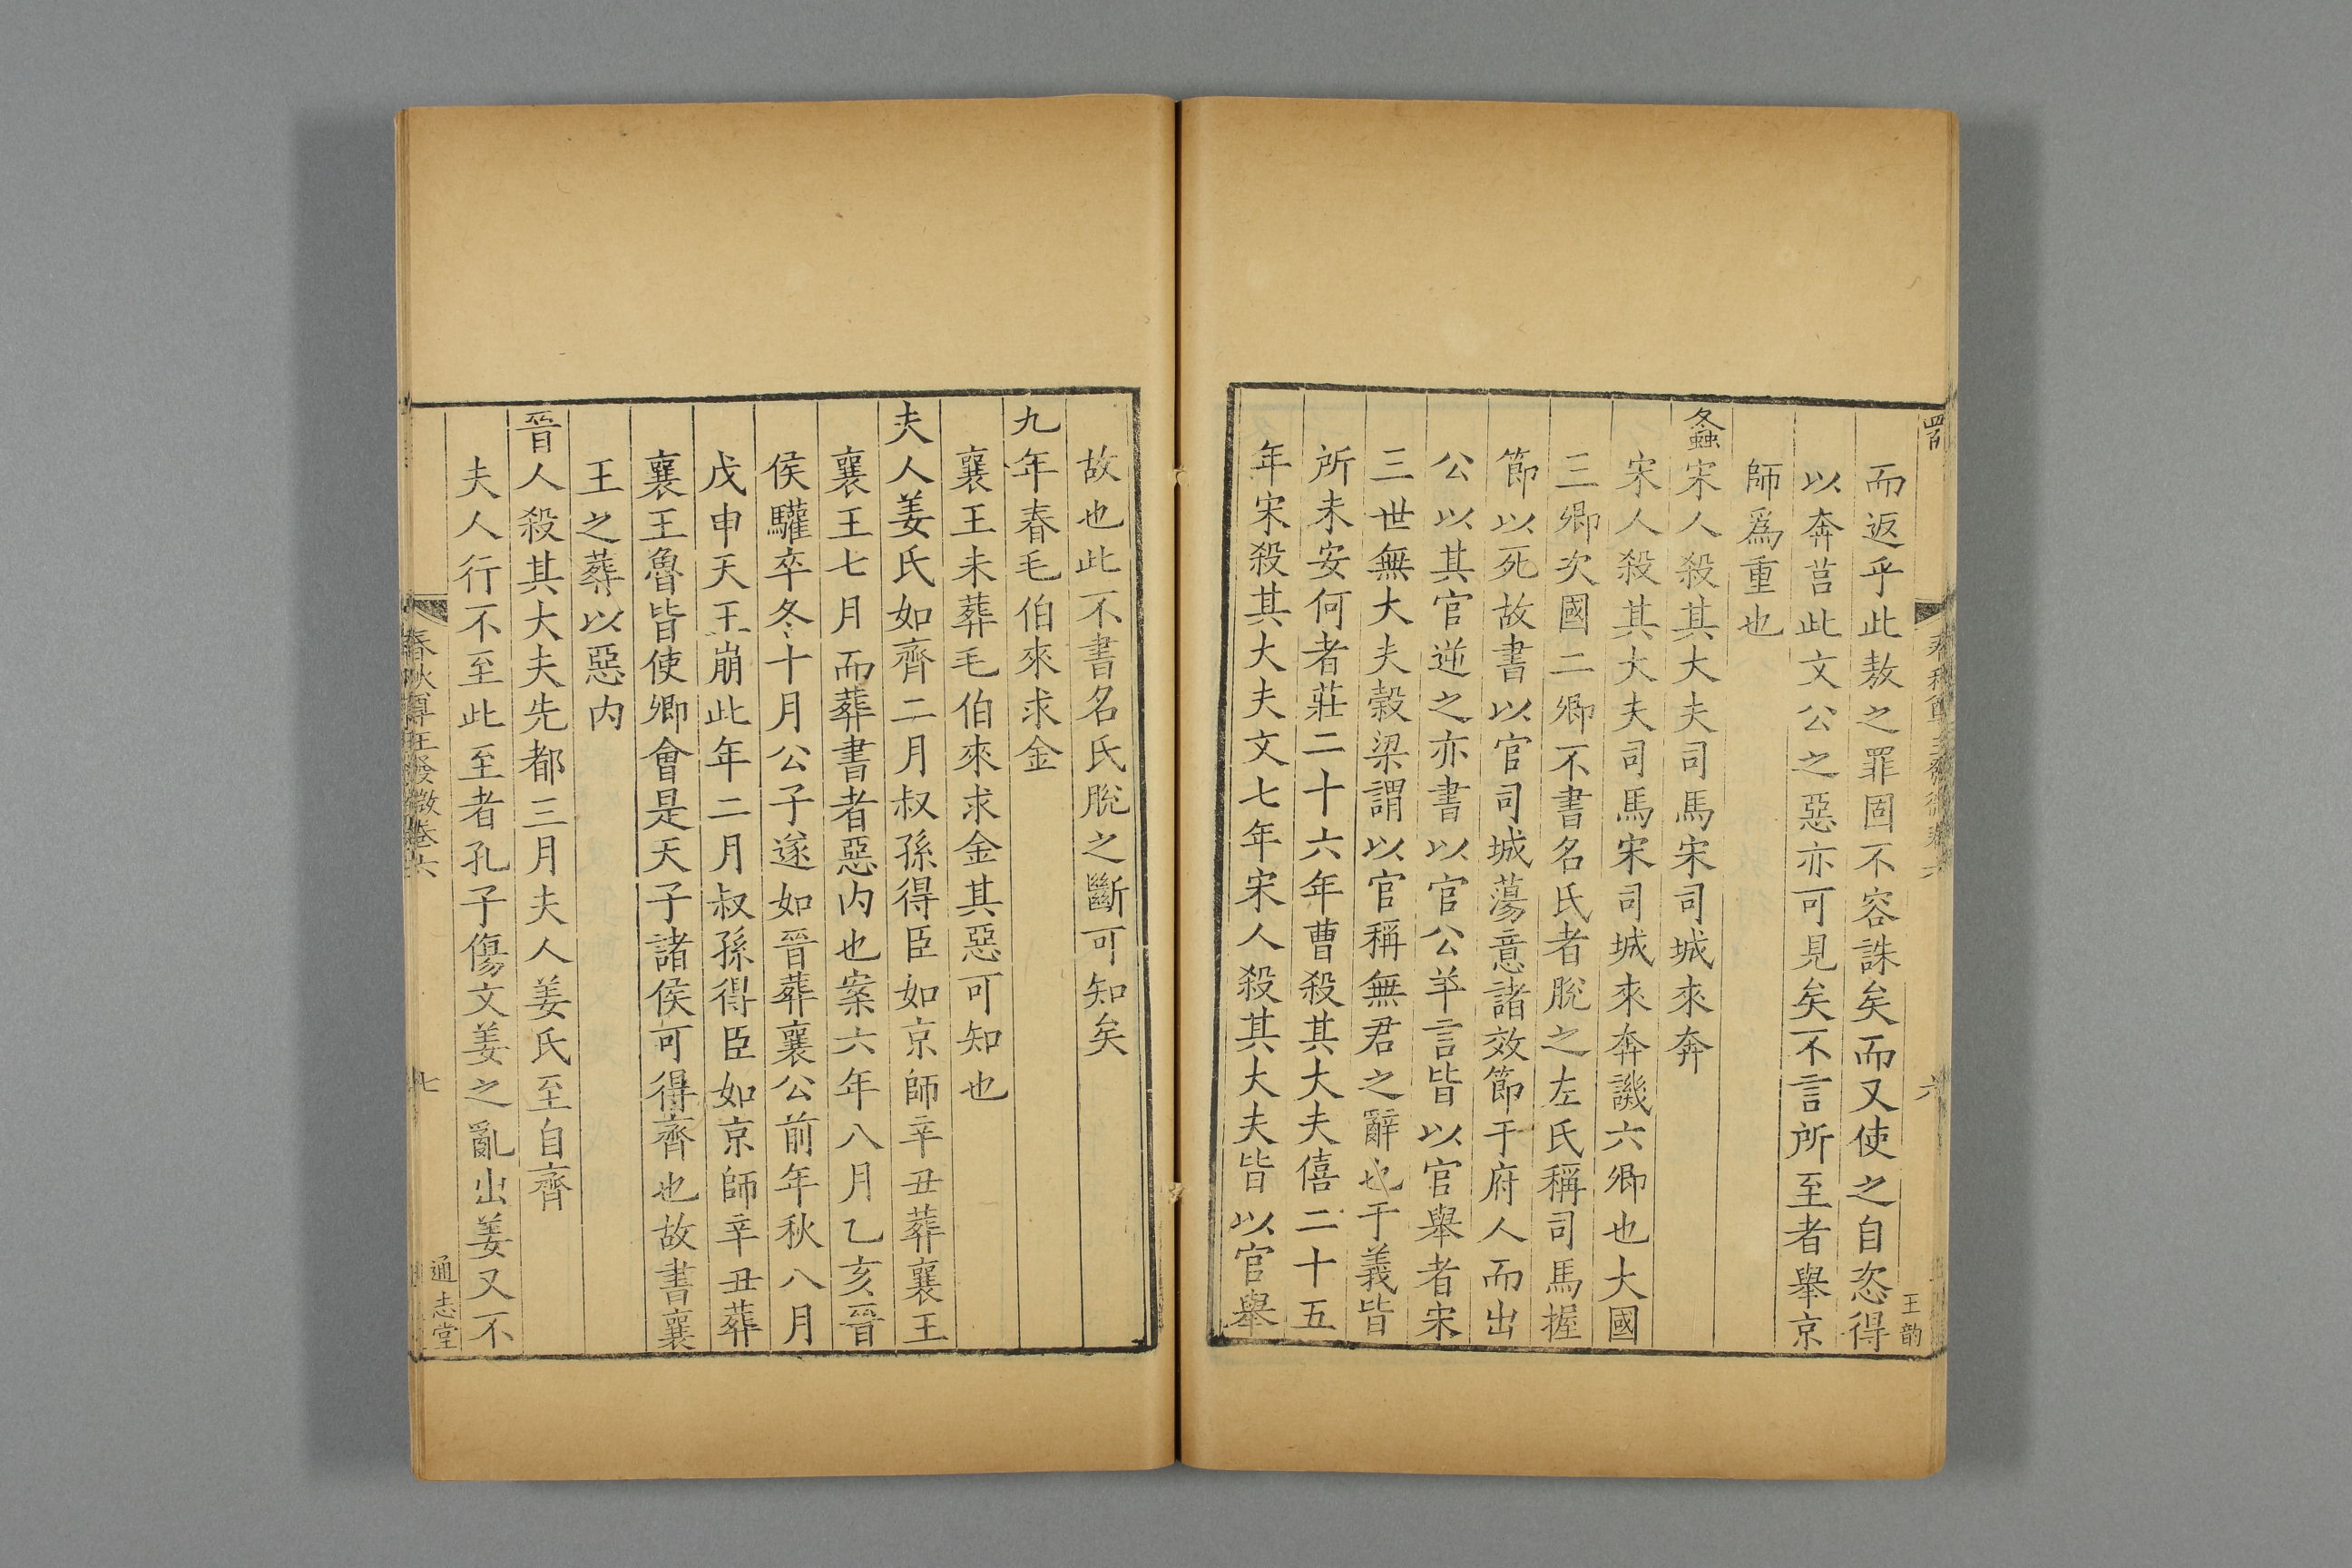 而返乎此敖之罪固不容誅矣而又使之自恣得
以奔莒此文公之惡亦可見矣不言所至者舉京
師爲重也
螽宋人殺其大夫司馬宋司城來奔
宋人殺其大夫司馬宋司城來奔譏六卿也大國
三卿次國二卿不書名氏者脫之左氏稱司馬握
節以死故書以官司城蕩意諸效節于府人而出
公以其官逆之亦書以官公羊言皆以官舉者宋
三世無大夫穀梁謂以官稱無君之辭也于義皆
所未安何者莊二十六年曹殺其大夫僖二十五
年宋殺其大夫文七年宋人殺其大夫皆以官舉
六
王韵
故也此不書名氏脫之斷可知矣
九年春毛伯來求金
襄王未葬毛伯來求金其惡可知也
夫人姜氏如齊二月叔孫得臣如京師辛丑葬襄王
襄王七月而葬書者惡内也案六年八月乙亥晉
侯驩卒冬十月公子遂如晉葬襄公前年秋八月
戊申天王崩此年二月叔孫得臣如京師辛丑葬
襄王魯皆使卿會是天子諸侯可得齊也故書襄
王之葬以惡内
晉人殺其大夫先都三月夫人姜氏至自齊
夫人行不至此至者孔子傷文姜之亂出姜又不
春秋尊王發微卷六
七
通志堂